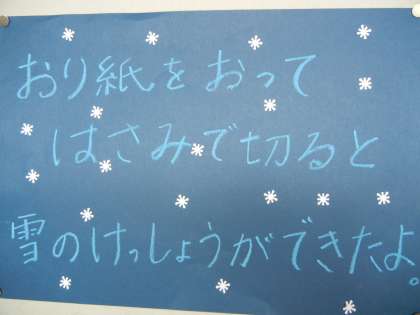 おり紙をおって
はさみで切ると
雪のけっしょうができたよ。